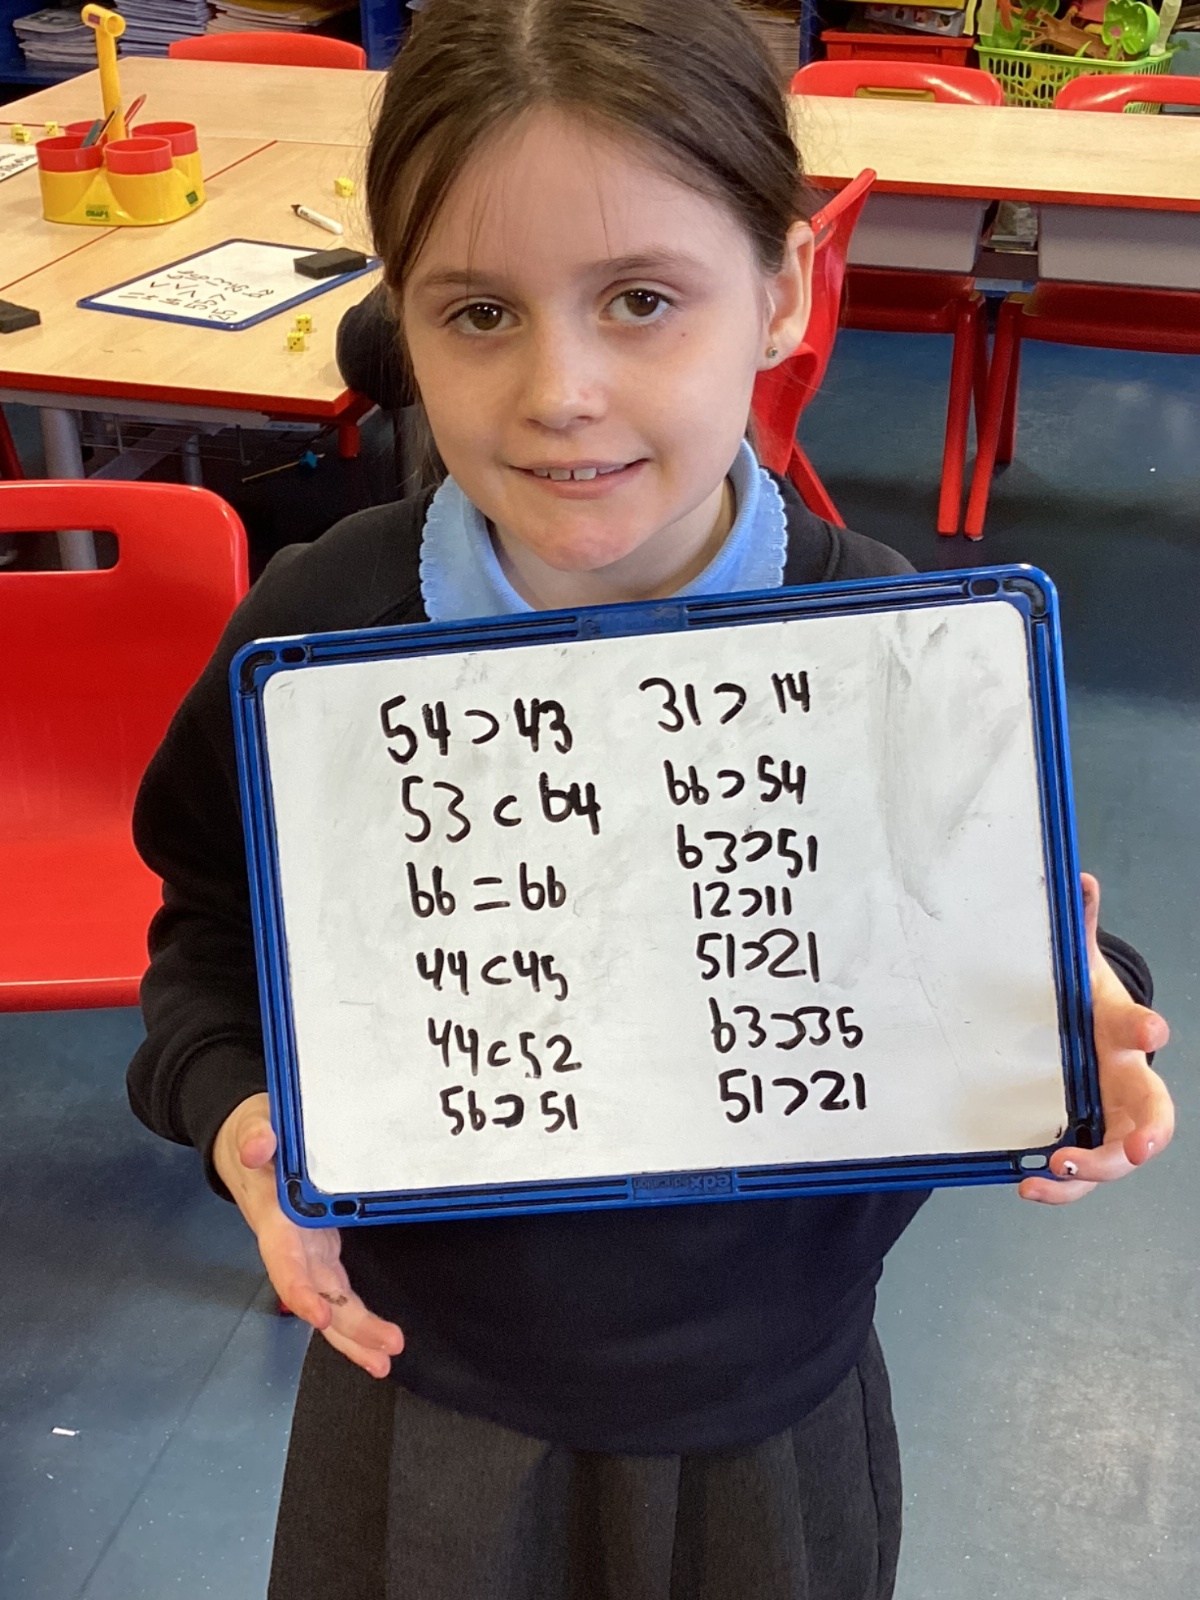 54 > 43
53 < 64
66 = 66
44 < 45
44 < 52
56 > 51
31 > 14
66 > 54
63 > 51
12 > 11
51 > 21
63 > 35
51 > 21
edx education